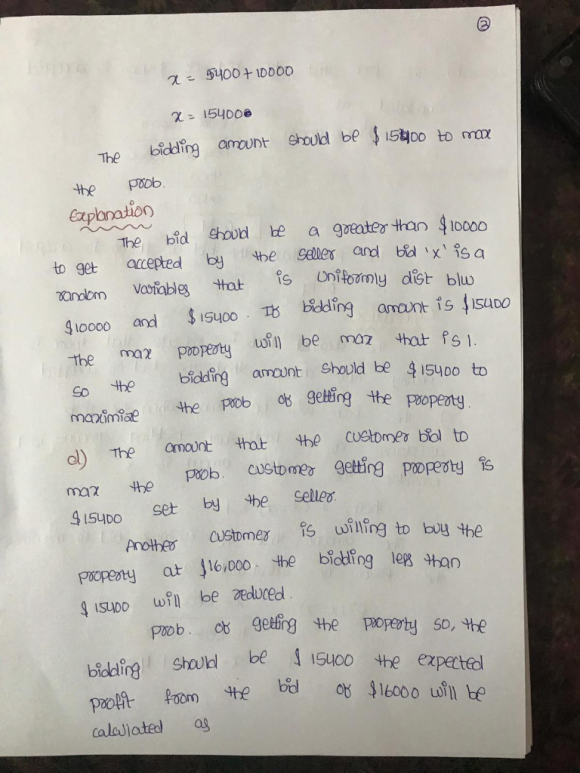 3
x = 5400 + 10000
x = 15400
The bidding amount should be $15400 to max
the prob.
Explanation
The bid should be a greater than $10000
to get accepted by the seller and bid 'x' is a
random variables that is uniformly dist b/w
$10000 and $15400. If bidding amount is $15400
The max property will be max that is 1.
so the bidding amount should be $15400 to
maximise the prob of getting the property.
d) The amount that the customer bid to
max the prob. customer getting property is
$15400 set by the seller.
Another customer is willing to buy the
property at $16,000. the bidding less than
$15400 will be reduced.
prob. of getting the property so, the
bidding should be $15400 the expected
profit from the bid of $16000 will be
calculated as